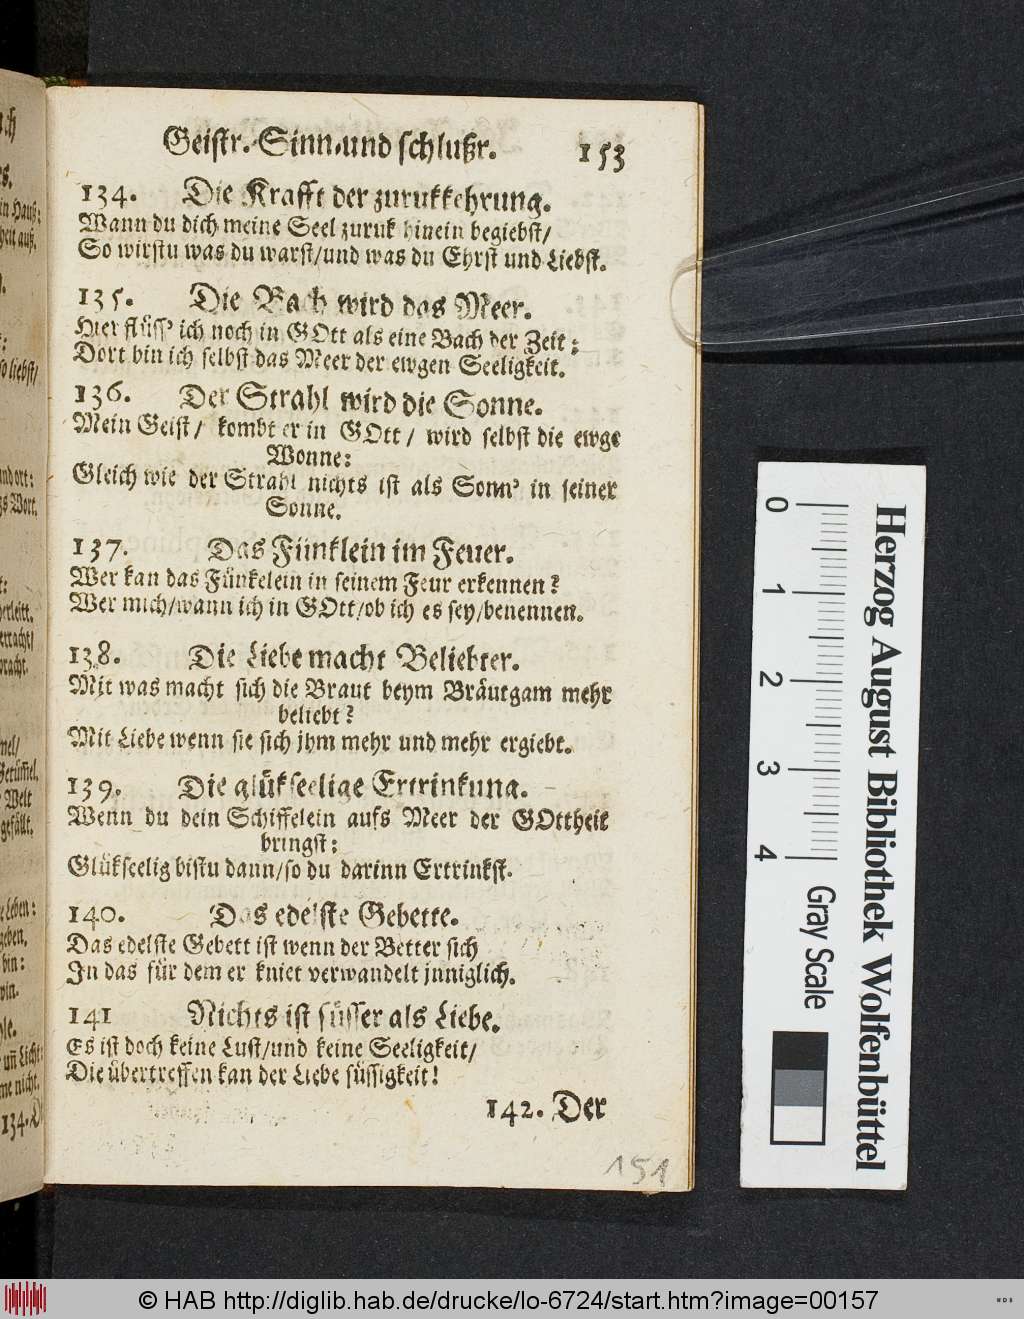 Geistr. Sinn. und schlußr. 153
134. Die Krafft der zurukkehrung.
Wann du dich meine Seel zuruk hinein begiebst/
So wirstu was du warst/und was du Ehrst und Liebst.
135. Die Bach wird das Meer.
Hier flüss' ich noch in GOtt als eine Bach der Zeit:
Dort bin ich selbst das Meer der ewgen Seeligkeit.
136. Der Strahl wird die Sonne.
Mein Geist/ kombt er in GOtt/ wird selbst die ewge
Wonne:
Gleich wie der Strahl nichts ist als Sonn' in seiner
Sonne.
137. Das Fünklein im Feuer.
Wer kan das Fünkelein in seinem Feur erkennen?
Wer mich/wann ich in GOtt/ob ich es sey/benennen.
138. Die Liebe macht Beliebter.
Mit was macht sich die Braut beym Bräutgam mehr
beliebt?
Mit Liebe wenn sie sich jhm mehr und mehr ergiebt.
139. Die glükseelige Ertrinkung.
Wenn du dein Schiffelein aufs Meer der GOttheit
bringst:
Glükseelig bistu dann/so du darinn Ertrinkst.
140. Das edelste Gebette.
Das edelste Gebett ist wenn der Better sich
In das für dem er kniet verwandelt jnniglich.
141 Nichts ist süsser als Liebe.
Es ist doch keine Lust/und keine Seeligkeit/
Die übertreffen kan der Liebe süssigkeit!
142. Der
151
Herzog August Bibliothek Wolfenbüttel
0 1 2 3 4 Gray Scale
© HAB http://diglib.hab.de/drucke/lo-6724/start.htm?image=00157